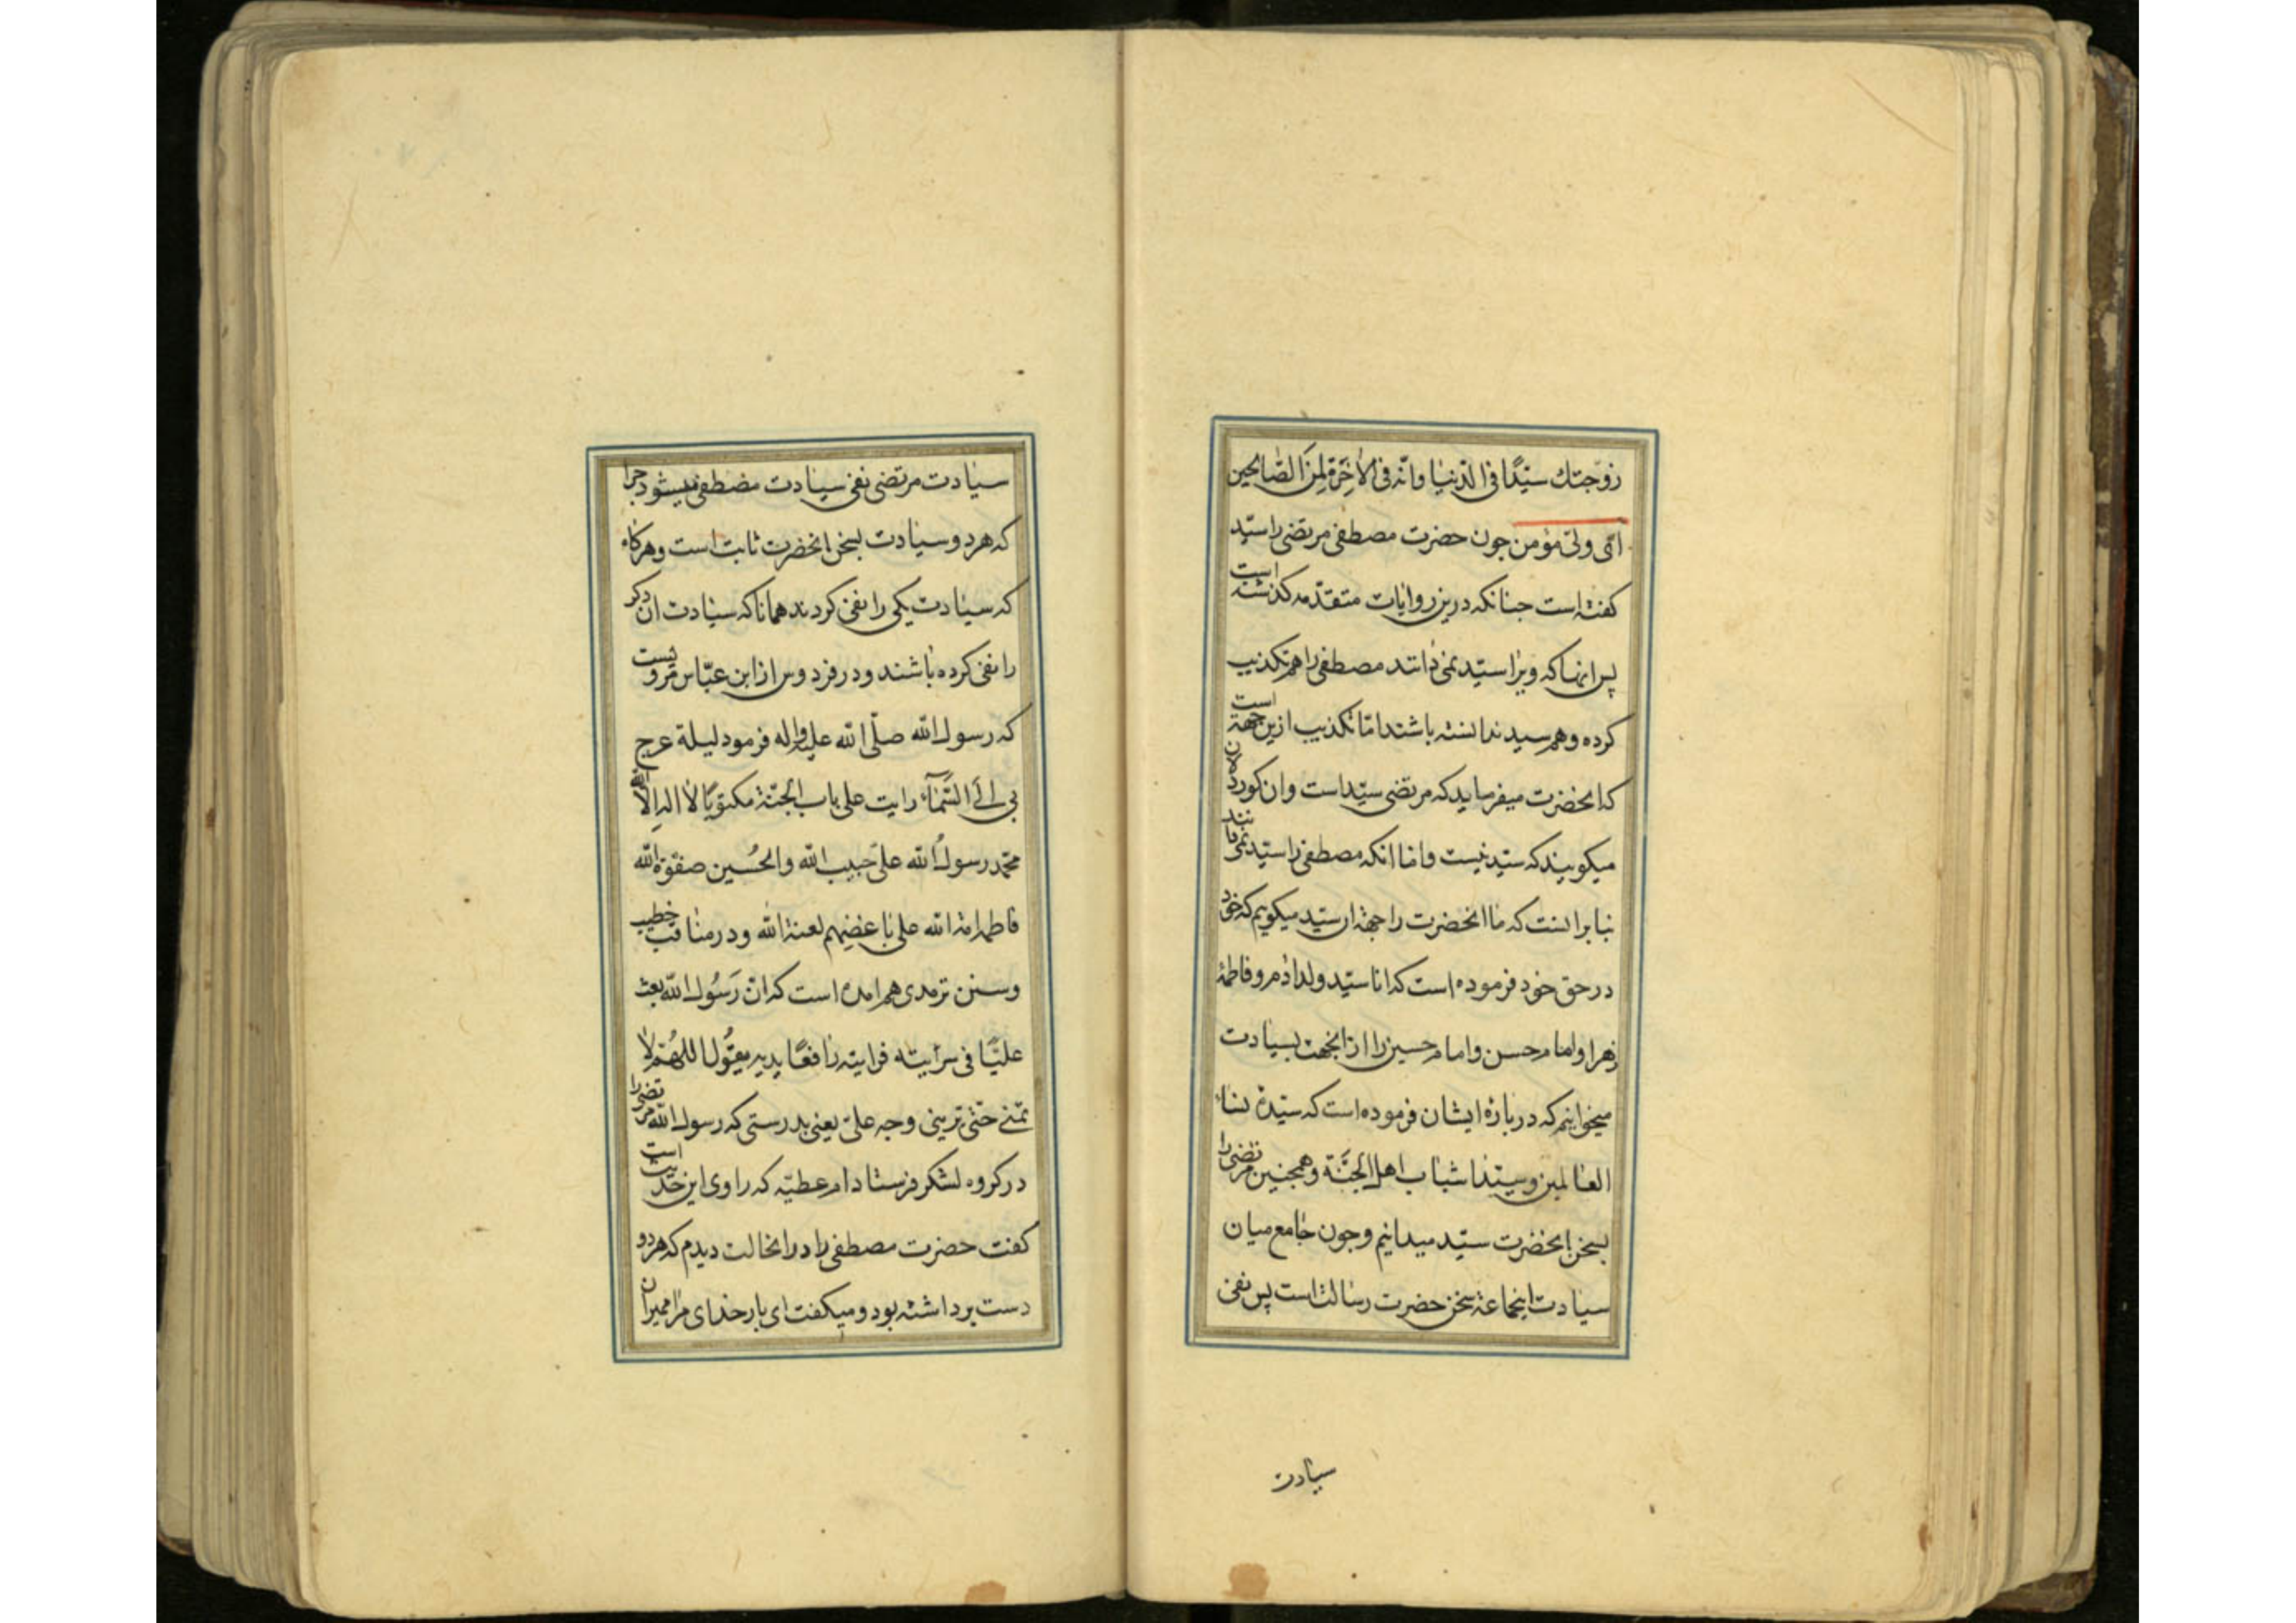 زوّجتك سیّدًا فی الدّنیا وانّه فی الاٰخرة لمن الصّالحین
ای ولیّ مؤمن جون حضرت مصطفی مرتضی را سیّد
کفته است جنانکه درین روایات متقدّمه کذشته است
پس انها که ویرا سیّد نمی دانند مصطفی را هم تکذیب
کرده وهم سید ندانسته باشند امّا تکذیب ازین جهة است
که انحضرت میفرماید که مرتضی سیّد است وان کوردلان
میکویند که سیّد نیست وامّا انکه مصطفی را سیّد نمی دانند
بنا بر انست که ما انحضرت را جهة ان سیّد میکوییم که خود
در حق خود فرموده است که انا سیّد ولد ادم وفاطمهٔ
زهرا وامام حسن وامام حسین را از انجهت بسیادت
میخوانیم که در بارهٔ ایشان فرموده است که سیّدة نساء
العالمین وسیّدا شباب اهل الجنّة وهمجنین مرتضی را
بسخن انحضرت سیّد میدانیم وجون جامع میان
سیادت اینجماعة سخن حضرت رسالت است پس نفی
سیادت
سیادت مرتضی نفی سیادت مصطفی میشود جرا
که هر دو سیادت بسخن انحضرت ثابت است وهرکاه
که سیادت یکی را نفی کردند همانا که سیادت ان دکر
را نفی کرده باشند ودر فردوس از ابن عبّاس مرویست
که رسول الله صلّی الله علیه واله فرمود لیلة عرج
بی الی السّمآء رایت علی باب الجنّة مکتوبًا لا اله الّا الله
محمّد رسول الله علیّ حبیب الله والحُسین صفوة الله
فاطمة امة الله علی باغضیهم لعنة الله ودر مناقب خطیب
وسنن ترمدی هم امده است که انّ رَسُول الله بعث
علیًّا فی سرایته فرایته رافعًا یدیه یقُول اللهُمّ لا
تمتنی حتّی ترینی وجه علیّ یعنی بدرستی که رسول الله مرتضی را
در کروه لشکر فرستاد ام عطیّه که راوی این حدیث است
کفت حضرت مصطفی را در انحالت دیدم که هر دو
دست برداشته بود ومیکفت ای بار خدای مرا ممیران